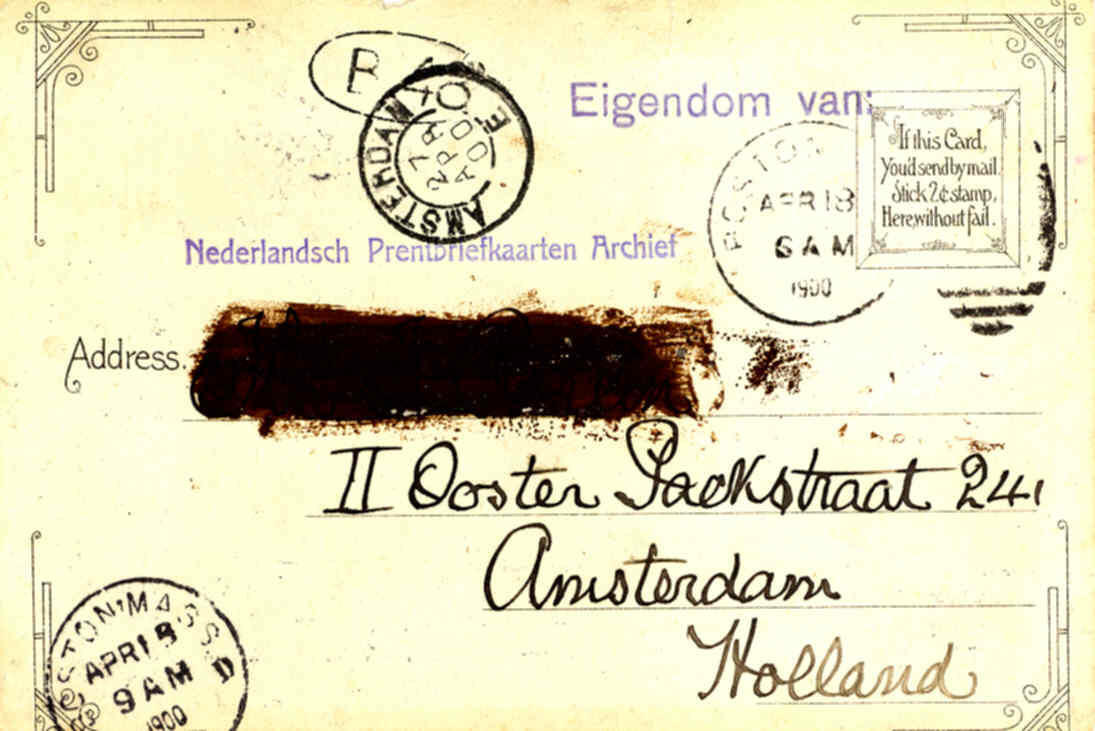 R
AMSTERDAM
27 APR
00
Eigendom van:
BOSTON
APR 18
6 AM
1900
If this Card,
You'd send by mail.
Stick 2¢ stamp,
Here, without fail.
Nederlandsch Prentbriefkaarten Archief
Address.
II Ooster Packstraat 241
Amsterdam
Holland
BOSTON, MASS.
APR 18
9 AM
1900